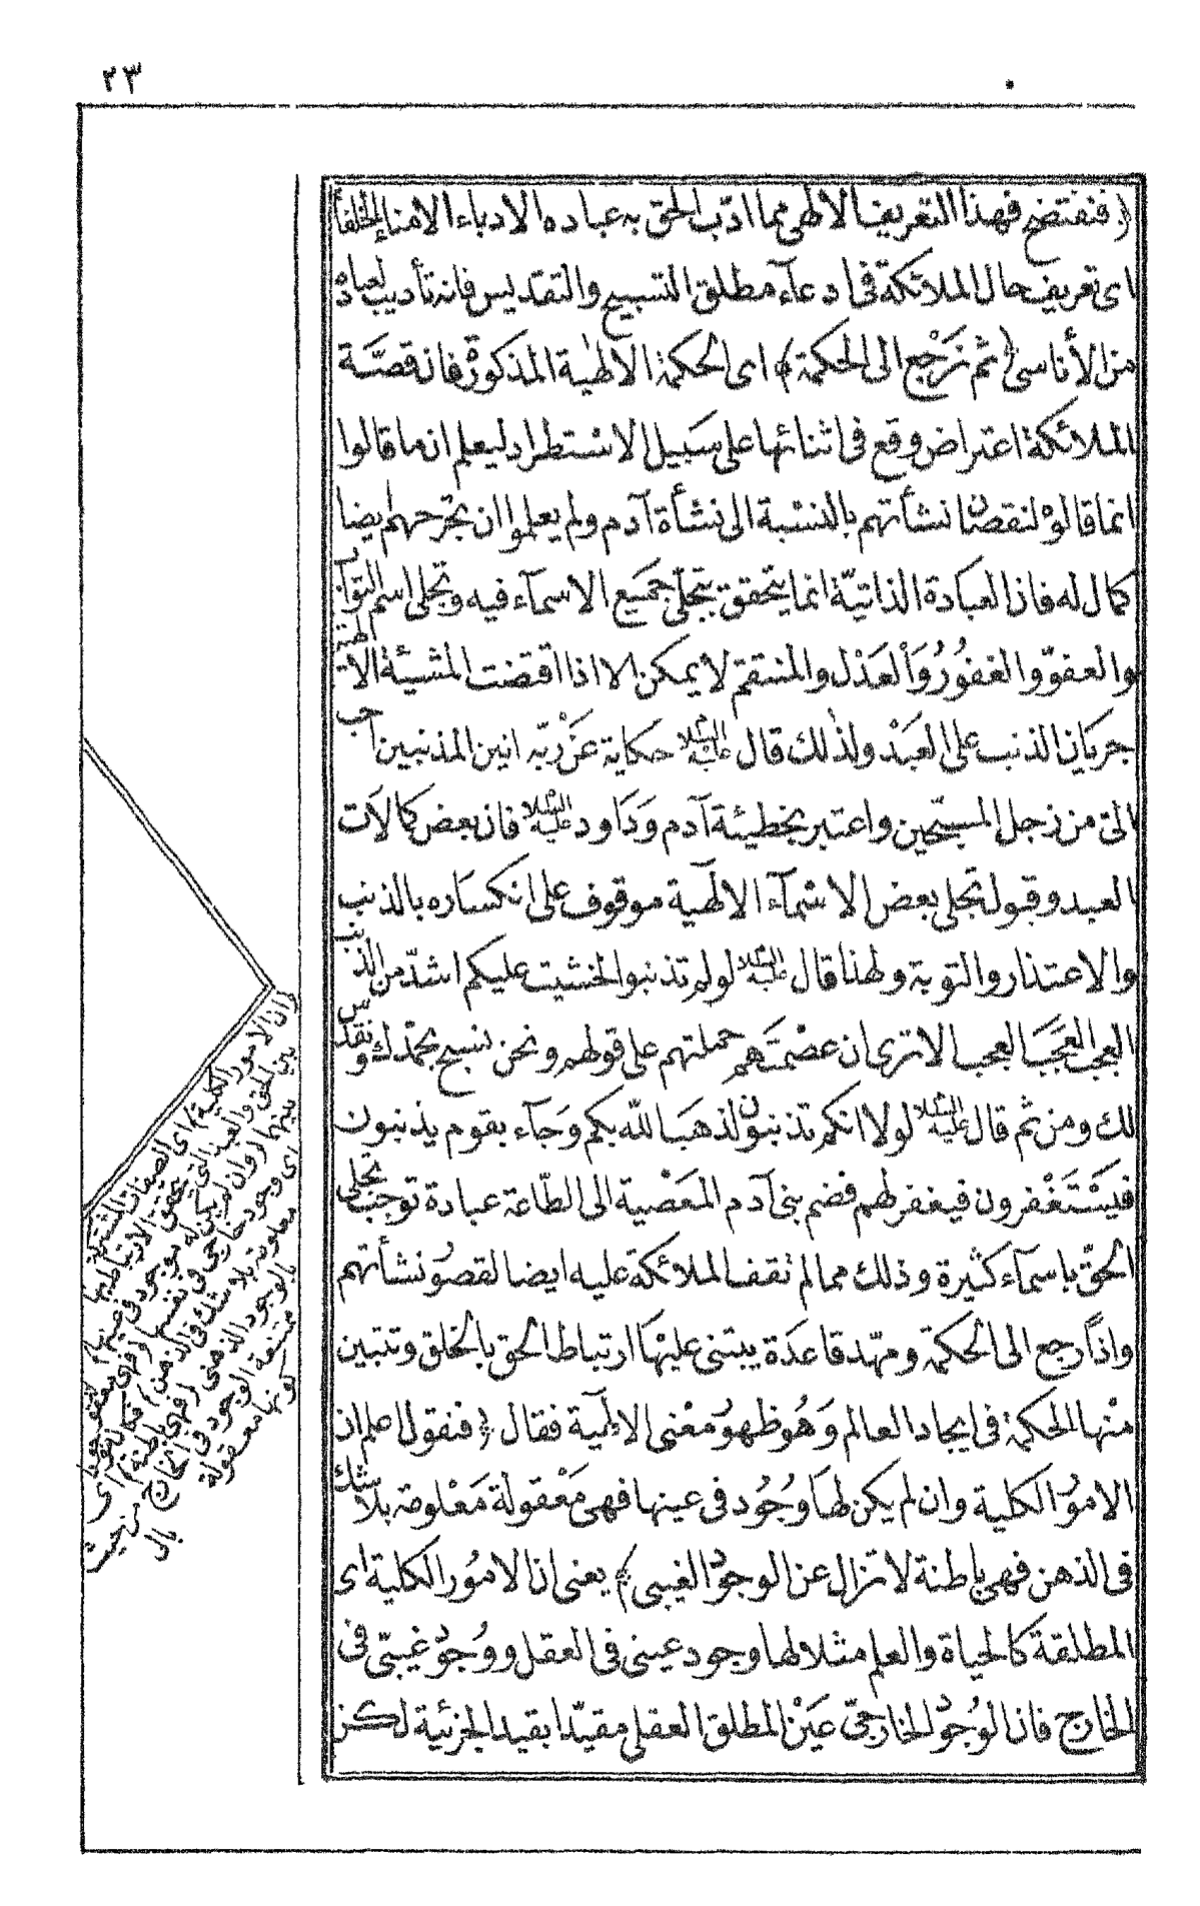 ٢٣
﴿ فنفتضح فهذا التعريف الالهى مما ادّب الحق به عباده الادباء الامناء الخلفاء ﴾
اى تعريف حال الملائكة فى ادعآء مطلق التسبيح والتقديس فانه تأديب لعباده
من الأناسى ﴿ ثم نَرْجع الى الحكمة ﴾ اى الحكمة الآلهية المذكورة فانه قصّة
الملائكة اعتراض وقع فى اثنائها على سَبيل الاستطراد ليعلم ان ما قالوا
انما قالوْ لنقصان نشأتهم بالنسْبة الى نشأة آدم ولم يعلموا ان تجرّحهم ايضا
كمال له فان العبَادة الذاتيّة انما يتحقق بتجلّى جميع الاسمآء فيه وتجلى اسم التوّاب
والعفوّ والغفوُر وَالْعَدْل والمنتقم لا يمكن الا اذا اقتضت المشيئة الالهيّة
جريان الذنب على العبْد ولذٰلك قال عليه السلام حكاية عَنْ ربّه انين المذنبين احب
الىّ من زجل المسبّحين واعتبر بخطيئة آدم وَدَاود عليه السلام فان بعض كمالات
العبد وقبوله تجلى بعض الاسْمآء الالهٓية موقوف على انكسَاره بالذنب
والاعتذار والتوبة ولهذا قال عليه السلام لو لم تذنبوا لخشيت عليكم اشدّ من الذنب
العجب العَجَب العجب الا ترى ان عصْمتَهم حملتهم على قولهم ونحن نسبح بحمدك ونقدس
لك ومن ثم قال عليه السلام لولا انكم تذنبون لذهبَ الله بكم وَجآء بقوم يذنبون
فيَسْتَغْفرون فيغفر لهم فضم بنى آدم المعَصْية الى الطّاعة عبادة توجب تجلى
الحقّ باسمآء كثيرة وذلك مما لم تقف الملائكة عليه ايضا لقصُو نشأتهم
واذاً رجع الى الحكمة ومهّد قاعدَة يبتنى عليْها ارتباط الحق بالخلق وتتبين
منْها الحكمة فى ايجاد العالم وَهُو ظهوُ معْنى الالٓهية فقال ﴿ فنقول اعلم ان
الاموُ الكلية وان لم يكن لهَا وجُود فى عينها فهى مَعْقولة مَعْلومة بلا شك
فى الذهن فهى باطنة لا تزال عن الوجود الغيبى ﴾ يعنى ان الامُور الكلية اى
المطلقة كالحياة والعلم مثلا لها وجود عينى فى العقل ووُجود غيبّى فى
الخارج فان الوُجود الخارجىّ عَيْن المطلق العقلى مقيّدا بقيد الجزئية لكن
ان الامور الكلية اى الصفات المشتركة
بين الحق والعبد التى تحقق الارتباط بها
بينهما وان لم يكن له موجود فى عينها
اى وجود خارجى فى نفسها فهى معقولة
معلومة بلا شك فى الذهن فهى باطنة
بالوجود الذهنى
ممتنعة الوجود فى الخارج من حيث
كونها معقولة